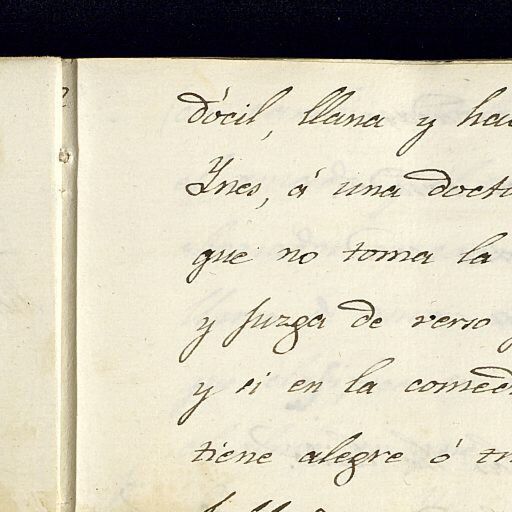 dócil, llana y ha
Ynes, á una doct
que no toma la
y juzga de verso
y si en la comed
tiene alegre ó tr